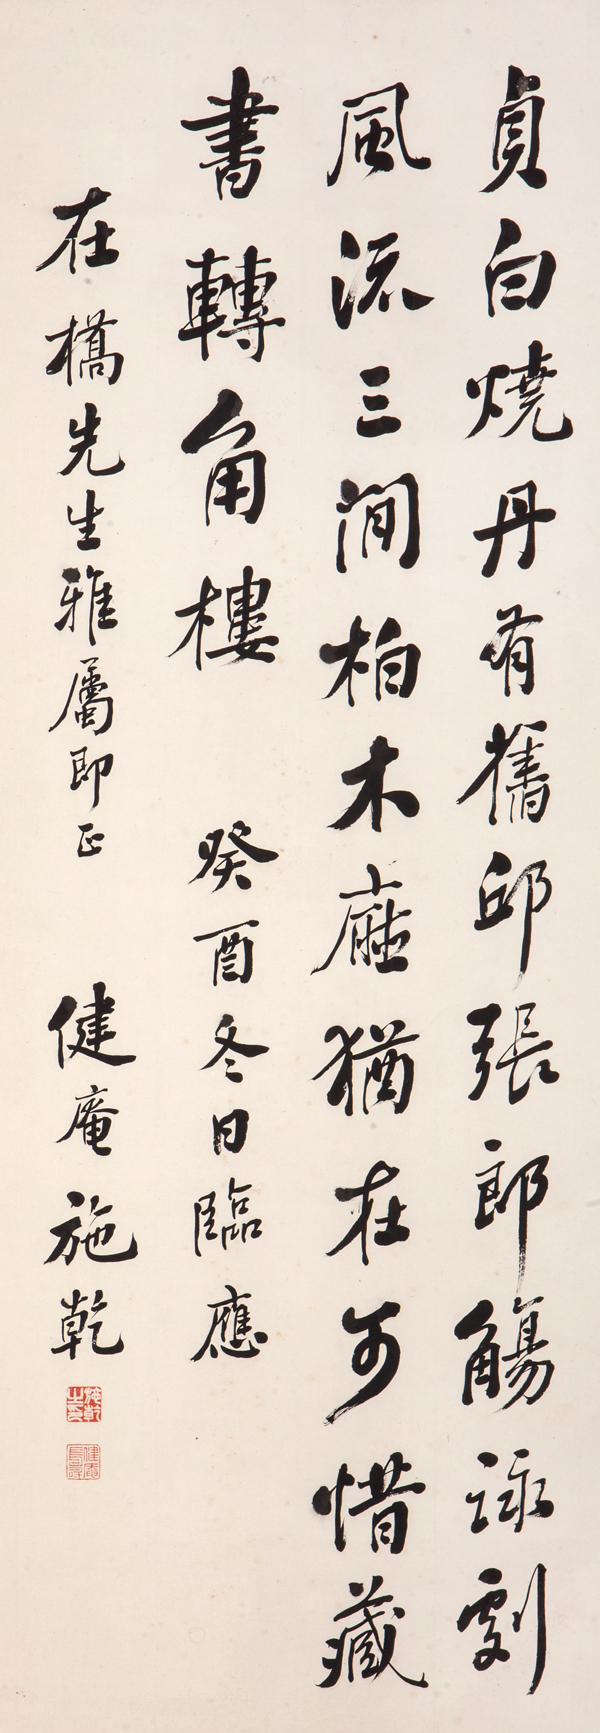 貞白燒丹有舊邱張郎觴詠劇
風流三間柏木廳猶在可惜藏
書轉角樓
癸酉冬日臨應
在橋先生雅屬即正
健庵施乾
施乾之印